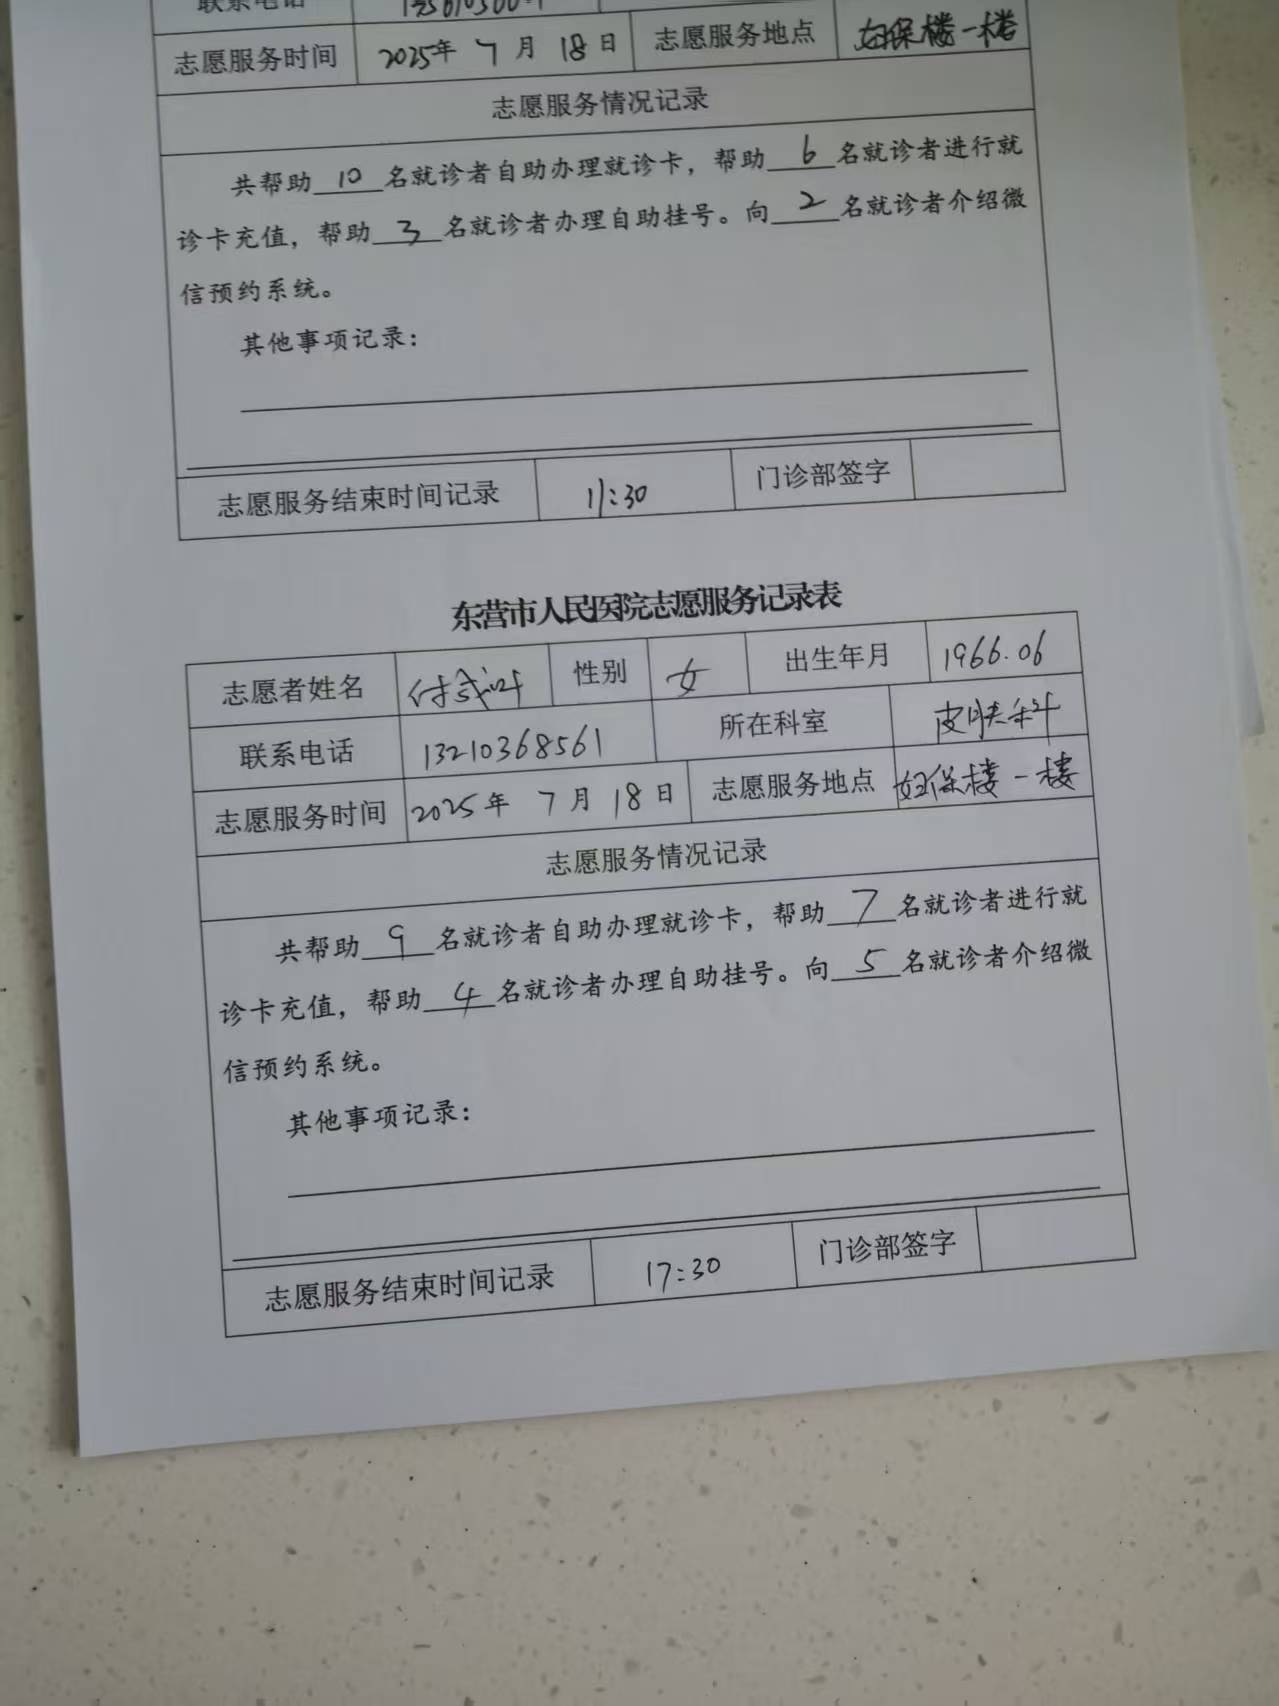 联系电话
志愿服务时间 2025年 7 月 18 日 志愿服务地点 妇保楼一楼
志愿服务情况记录
共帮助 10 名就诊者自助办理就诊卡，帮助 6 名就诊者进行就
诊卡充值，帮助 3 名就诊者办理自助挂号。向 2 名就诊者介绍微
信预约系统。
其他事项记录：
志愿服务结束时间记录 11:30 门诊部签字
东营市人民医院志愿服务记录表
志愿者姓名 性别 女 出生年月 1966.06
联系电话 13210368561 所在科室 皮肤科
志愿服务时间 2025年 7 月 18 日 志愿服务地点 妇保楼一楼
志愿服务情况记录
共帮助 9 名就诊者自助办理就诊卡，帮助 7 名就诊者进行就
诊卡充值，帮助 4 名就诊者办理自助挂号。向 5 名就诊者介绍微
信预约系统。
其他事项记录：
志愿服务结束时间记录 17:30 门诊部签字